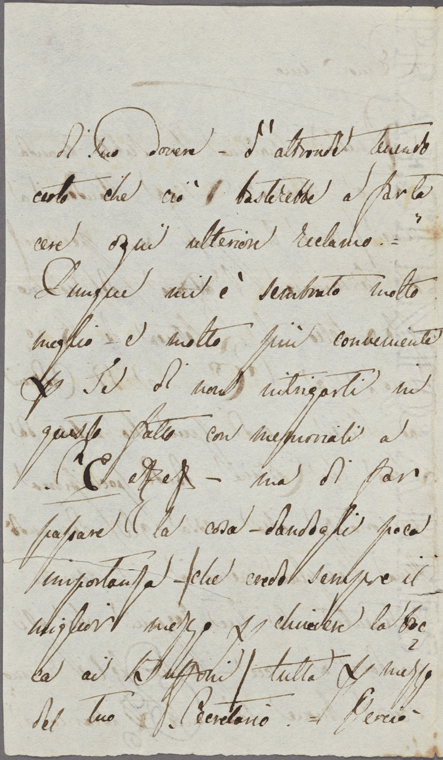 di suo dovere – d'altronde tenendo
certo che ciò basterebbe a far ta
cere ogni ulterior reclamo. =
Dunque mi è sembrato molto
meglio e molto più conveniente
p Te di non intrigarti in
questo fatto con memoriali a
– ma di far
passare la cosa – dandogli poca
importanza – che credo sempre il
miglior mezzo p chiudere la boc
ca ai Buffoni / tutta p mezzo
del tuo Secretario. = Perciò